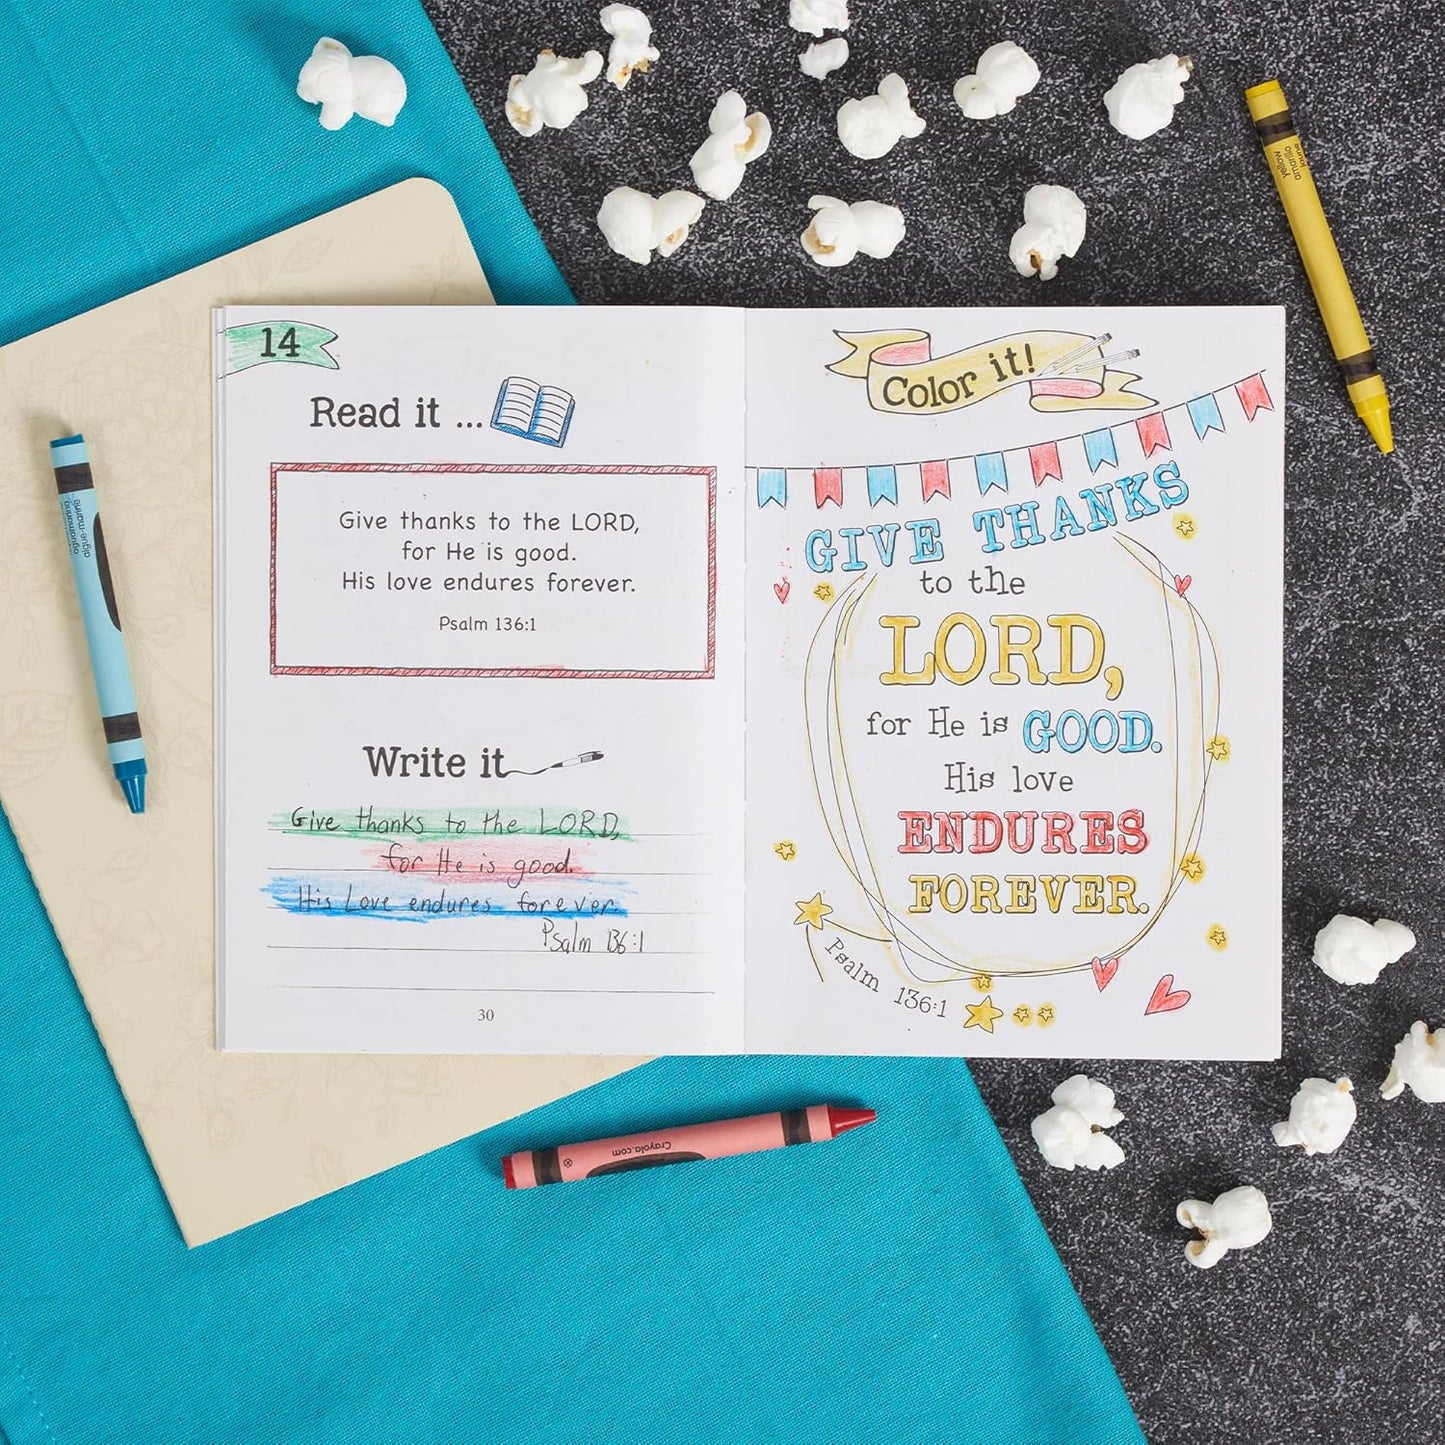 14
Read it ...
Give thanks to the LORD,
for He is good.
His love endures forever.
Psalm 136:1
Write it
Give thanks to the LORD,
for He is good.
His Love endures forever.
Psalm 136:1
30
Color it!
GIVE THANKS
to the
LORD,
for He is GOOD.
His love
ENDURES
FOREVER.
Psalm 136:1
yellow
amarillo
jaune
aquamarine
aigue-marine
Crayola.com
®